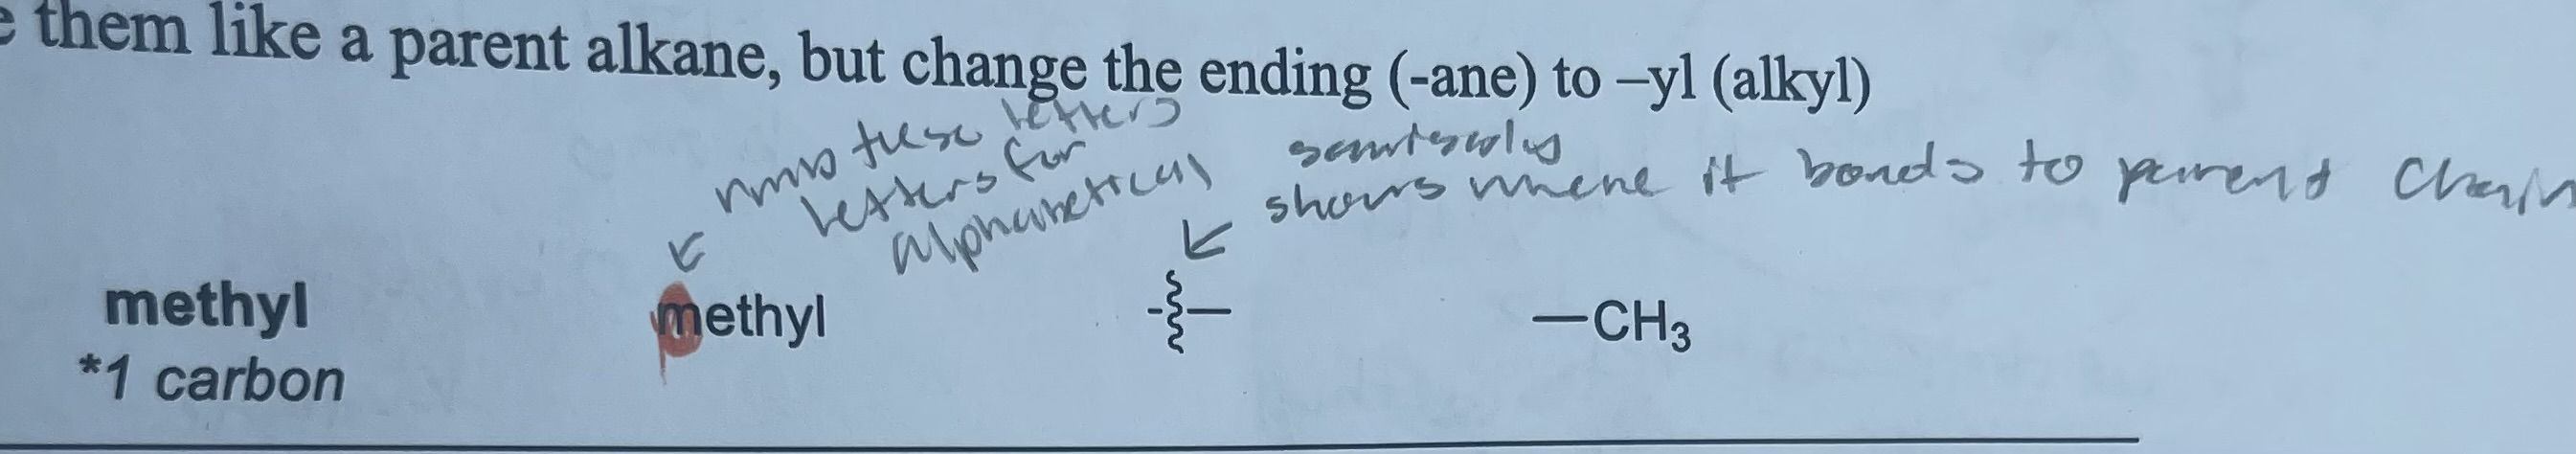 them like a parent alkane, but change the ending (-ane) to –yl (alkyl)
these letters
letters for
alphabetical
shows where it bonds to parent chain
methyl
methyl
—CH3
*1 carbon